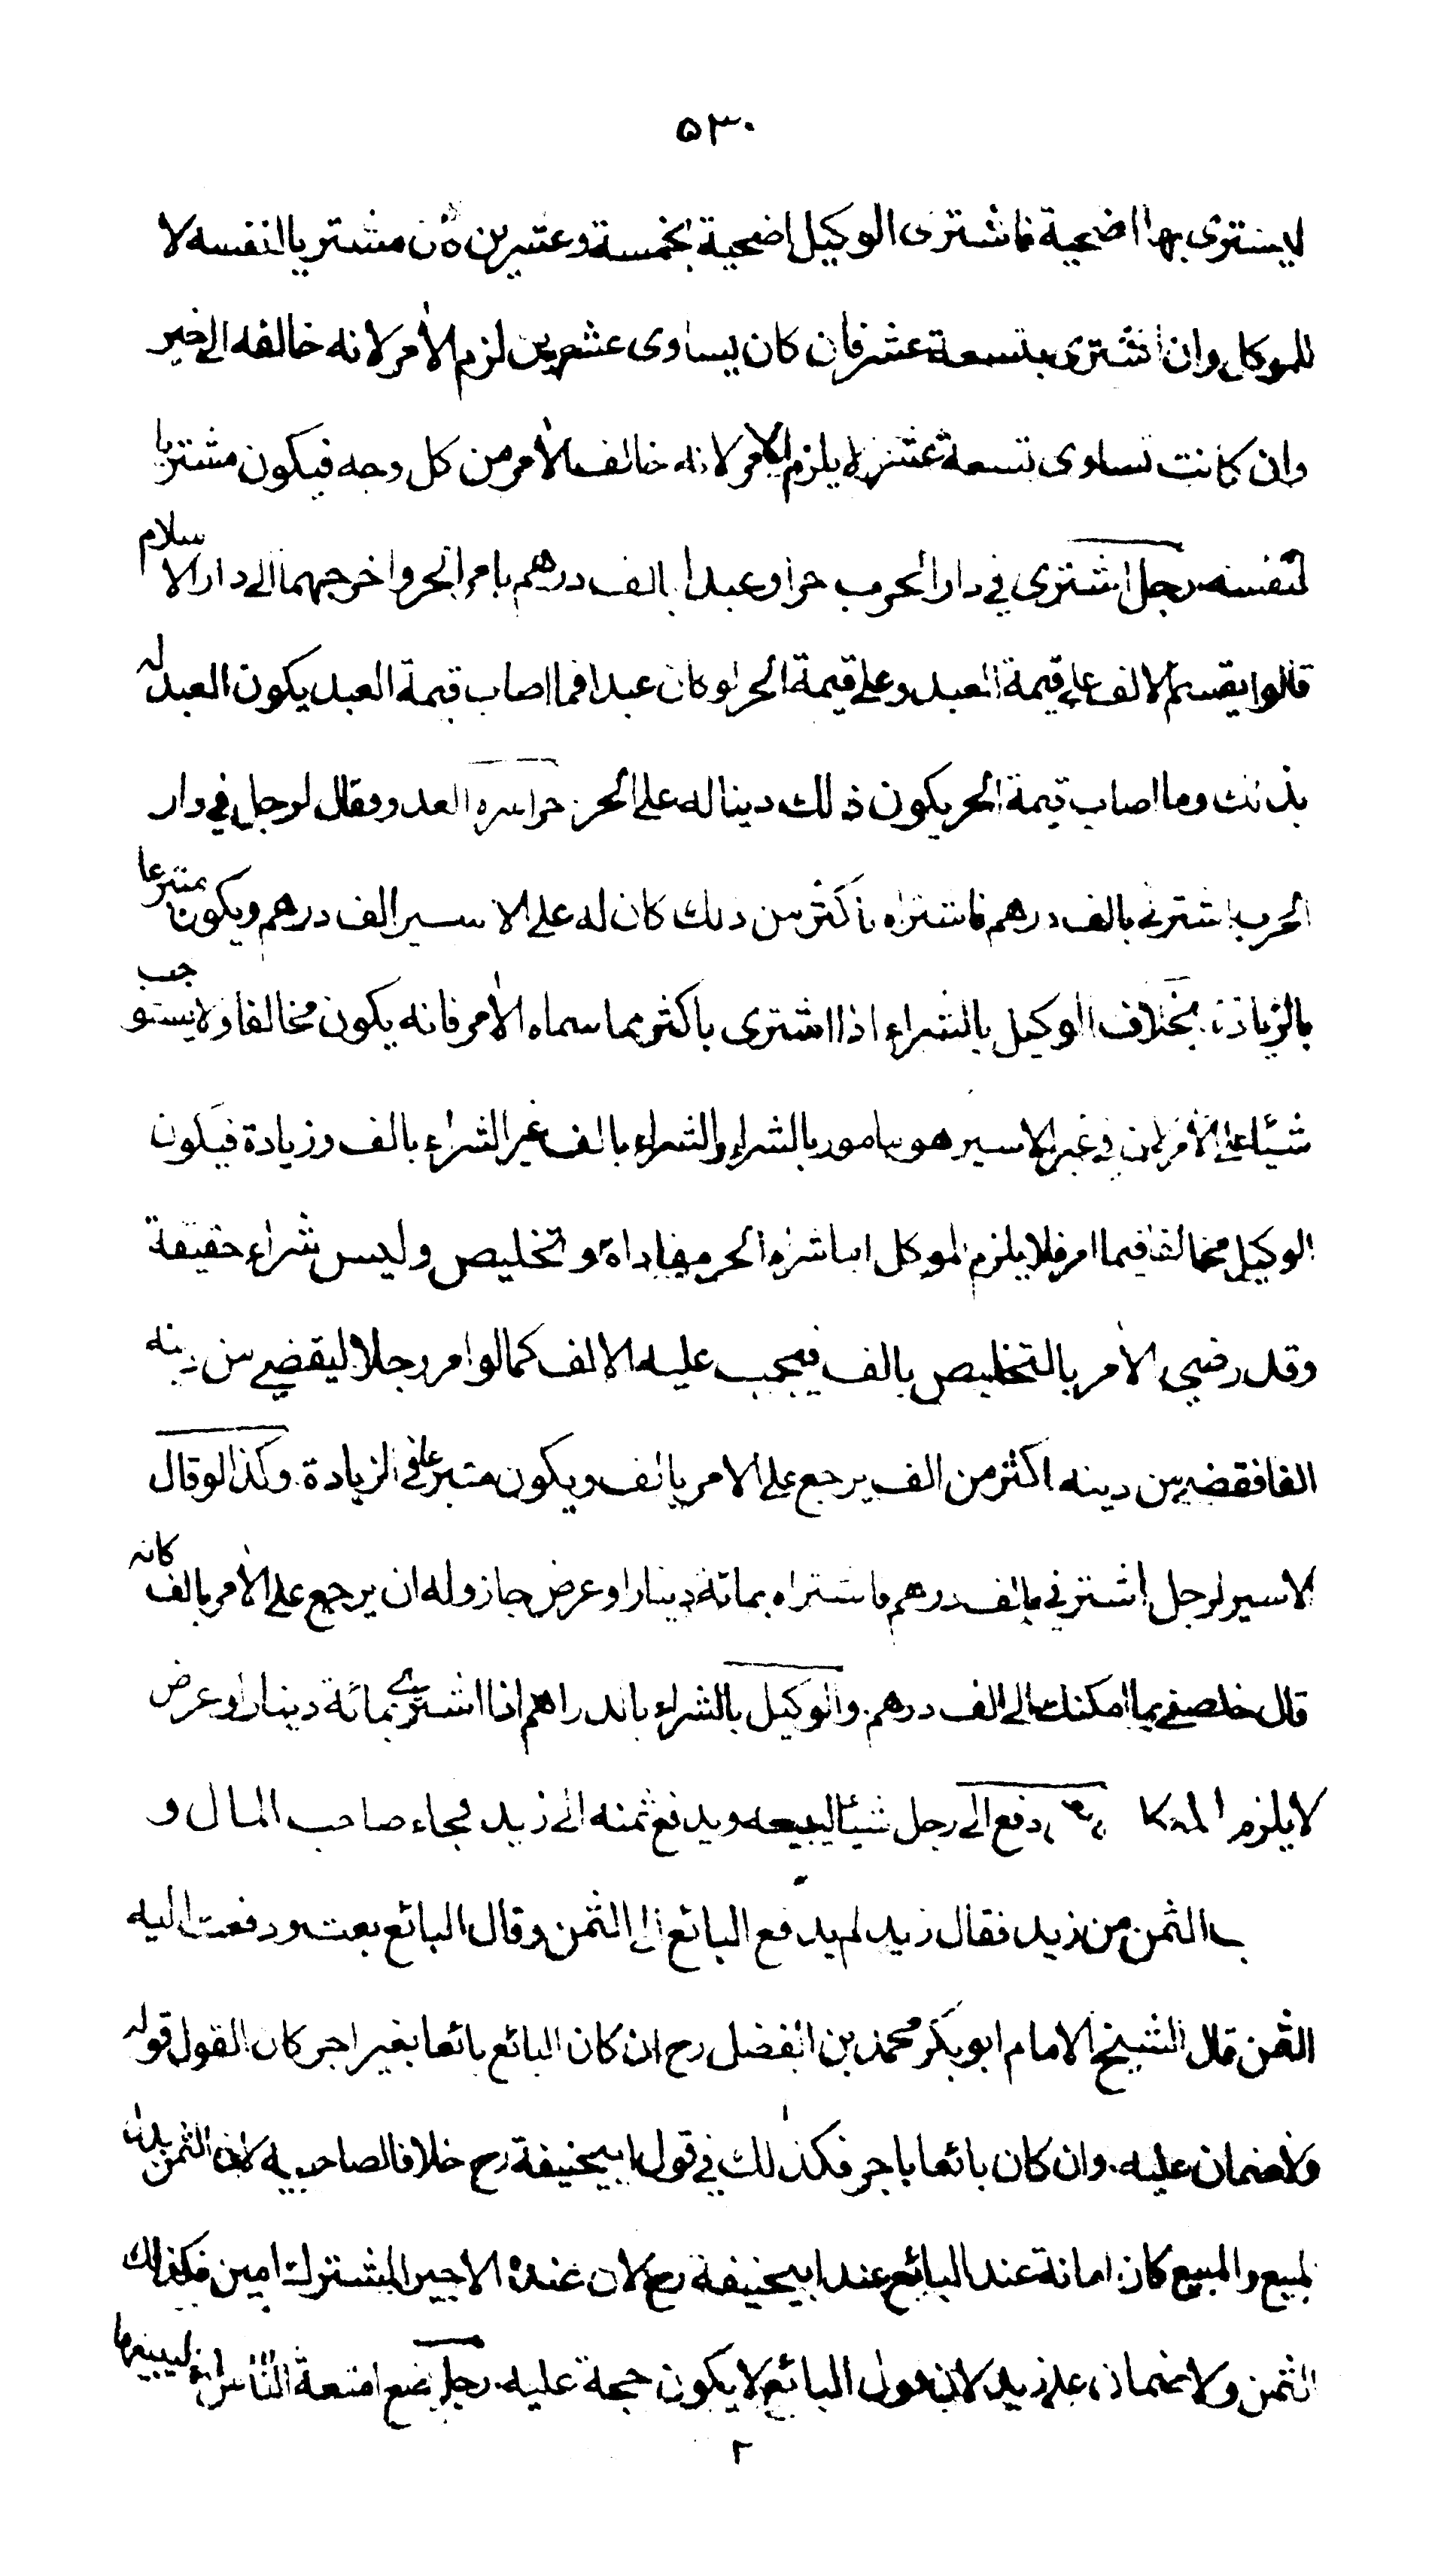 ۵۳۰
ليشترى بها اضحية فاشترى الوكيل اضحية بخمسة وعشرين كان مشتريا لنفسه لا
للموكل وان اشترى بتسعة عشر فان كان يساوى عشرين لزم الأمر لانه خالفه الى خير
وان كانت تساوى تسعة عشر لا يلزم الأمر لانه خالف الأمر من كل وجه فيكون مشتريا
لنفسه رجل اشترى في دار الحرب حرا وعبدا بالف درهم بامر الحر واخرجهما الى دار الاسلام
قالوا يقسم الالف على قيمة العبد وعلى قيمة الحر لو كان عبدا فما اصاب قيمة العبد يكون العبد له
بذلك وما اصاب قيمة الحر يكون ذلك دينا له على الحر حر اسره العدو وقال لرجل في دار
الحرب اشترنى بالف درهم فاشتراه باكثر من ذلك كان له على الاسير الف درهم ويكون متبرعا
بالزيادة بخلاف الوكيل بالشراء اذا اشترى باكثر مما سماه الأمر فانه يكون مخالفا ولا يستوجب
شيئا على الأمر لان في غير الاسير هو مامور بالشراء والشراء بالف غير الشراء بالف وزيادة فيكون
الوكيل مخالفا فيما امر فلا يلزم الموكل اما شراء الحر مفاداة وتخليص وليس شراء حقيقة
وقد رضى الأمر بالتخليص بالف فيجب عليه الالف كما لو امر رجلا ليقضى من دينه
الفا فقضى من دينه اكثر من الف يرجع على الامر بالف ويكون متبرعا فى الزيادة وكذا لو قال
الاسير لرجل اشترنى بالف درهم فاشتراه بمائة دينار او عرض جاز وله ان يرجع على الأمر بالف كانه
قال خلصنى بما امكنك الى الف درهم والوكيل بالشراء بالدراهم اذا اشترى بمائة دينار او عرض
لا يلزم الموكل دفع الى رجل شيئا ليبيعه ويدفع ثمنه الى زيد فجاء صاحب المال و
ب الثمن من زيد فقال زيد لم يدفع البائع الى الثمن وقال البائع بعت ودفعت اليه
الثمن قال الشيخ الامام ابو بكر محمد بن الفضل رح ان كان البائع بائعا بغير اجر كان القول قوله
ولا ضمان عليه وان كان بائعا باجر فكذلك في قول ابيحنيفة رح خلافا لصاحبيه لان الثمن بدل
لمبيع والمبيع كان امانة عند البائع عند ابيحنيفة رح لان عنده الاجير المشترك امين فكذلك
الثمن ولا ضمان على زيد لان قول البائع لا يكون حجة عليه رجل يضع امتعة الناس ليبيعها
۲